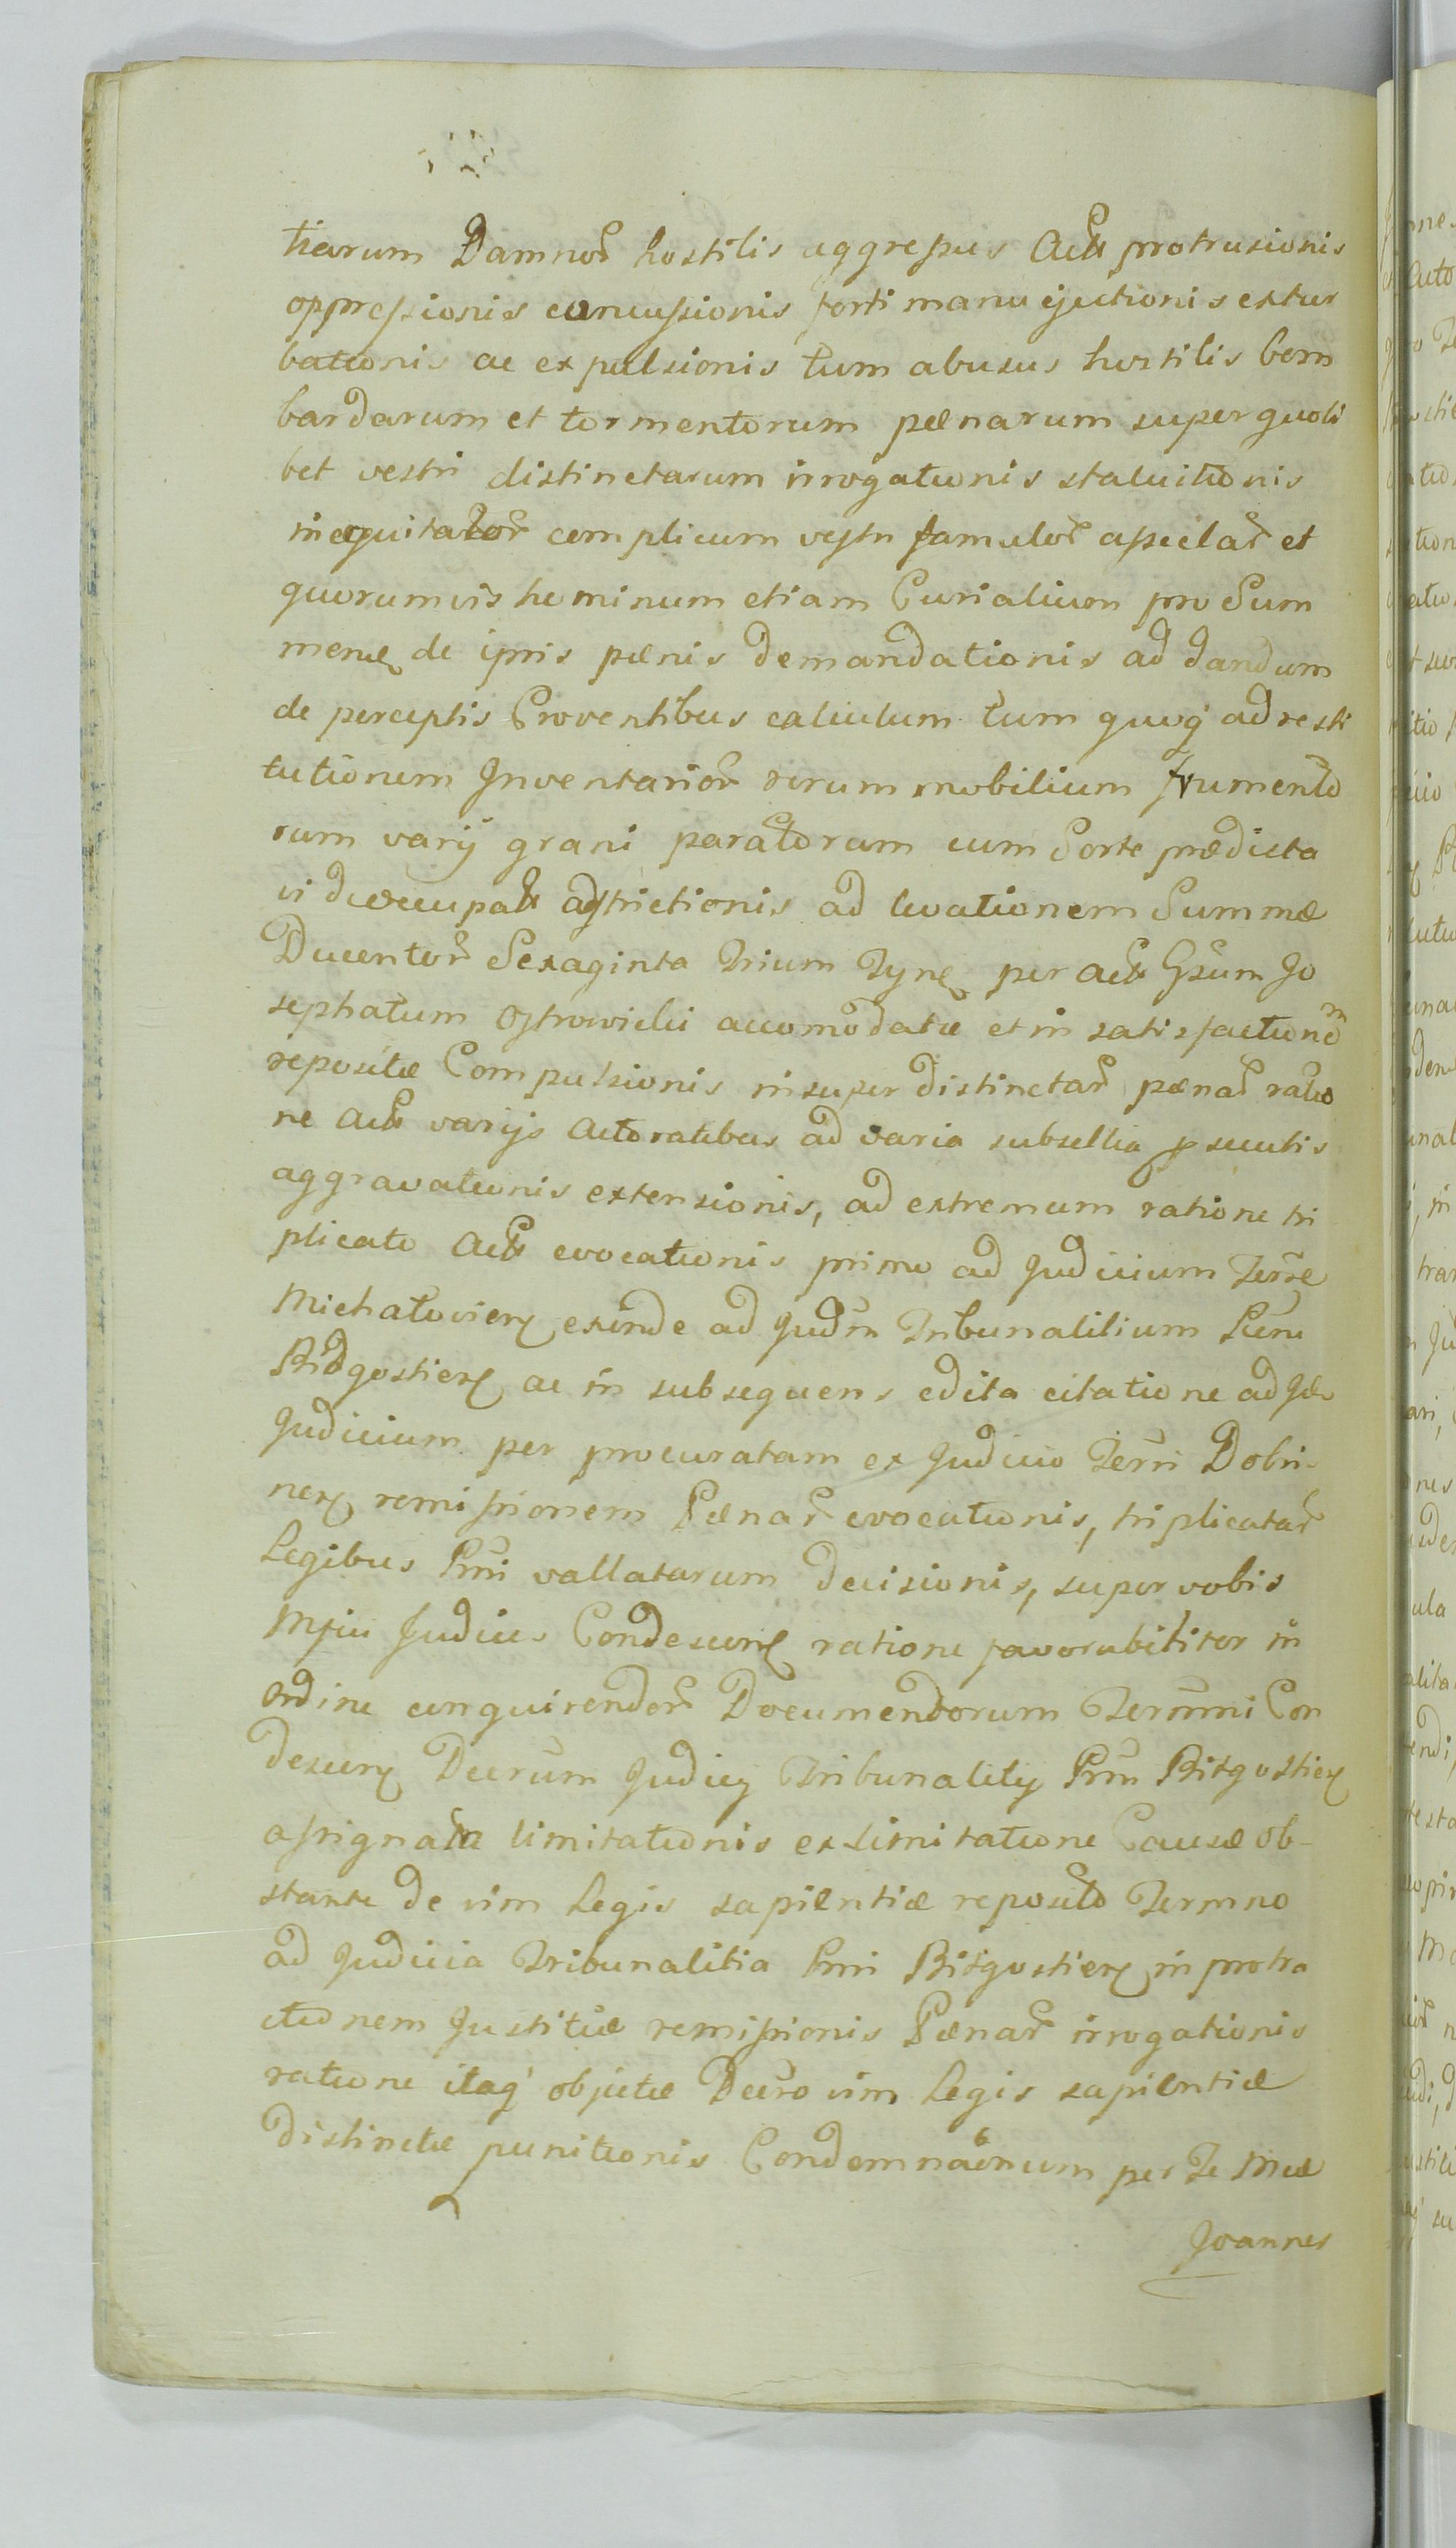 tiarum Damnor hostilis aggressus Actũ protrusionis
oppressionis concussionis forti manu ejectionis extur
bationis ac expulsionis tum abusus hostilis bom
bardarum et tormentorum pænarum super quoli
bet vestri distinctarum irrogationis statuitionis
inequitator complicum vestri famulor asseclar et
quorumvis hominum etiam Curialium pro Sum
de ipsis pænis demandationis ad dandum
de perceptis Proventibus calculum tum quoq ad resti
tutionem Inventarior rerum mobilium frumento
rum varij grani paratorum cum Sorte prædicta
vi adstrictionis ad levationem Summæ
Ducentor Sexaginta Trium Tynf per Gsum Jo
sephatum Ostrowicki accomodatæ et in satisfactionem
repositæ Compulsionis insuper distinctar pænar ratio
ne varijs Actoratibus ad varia subsellia
aggravationis extensionis, ad extremum ratione tri
plicato evocationis primo ad Judicium Terrle
Michałovien exinde ad Judm Tribunalitium
Bidgostien ac in subsequens edita citatione ad
Judicium per procuratam ex Judicio Terri Dobri-
nen remissionem Pænar evocationis, triplicatar
Legibus Rni vallatarum decisionis, super vobis
Judices Condescen ratione favorabiliter in
ordine conquirendor Documendorum Termni Con
descen Decrum Judicij Tribunalitij Rni Bidgostien
assignatæ limitationis ex limitatione Causæ ob-
stante de vim Legis sapientiæ reposito Termno
ad Judicia Tribunalitia Rni Bidgostien in protra
ctionem Justitiæ remissionis Pænar irrogationis
ratione itaq objectæ Decro vim Legis sapientiæ
distinctæ punitionis Condemnaonum per Te Mce
Joannes